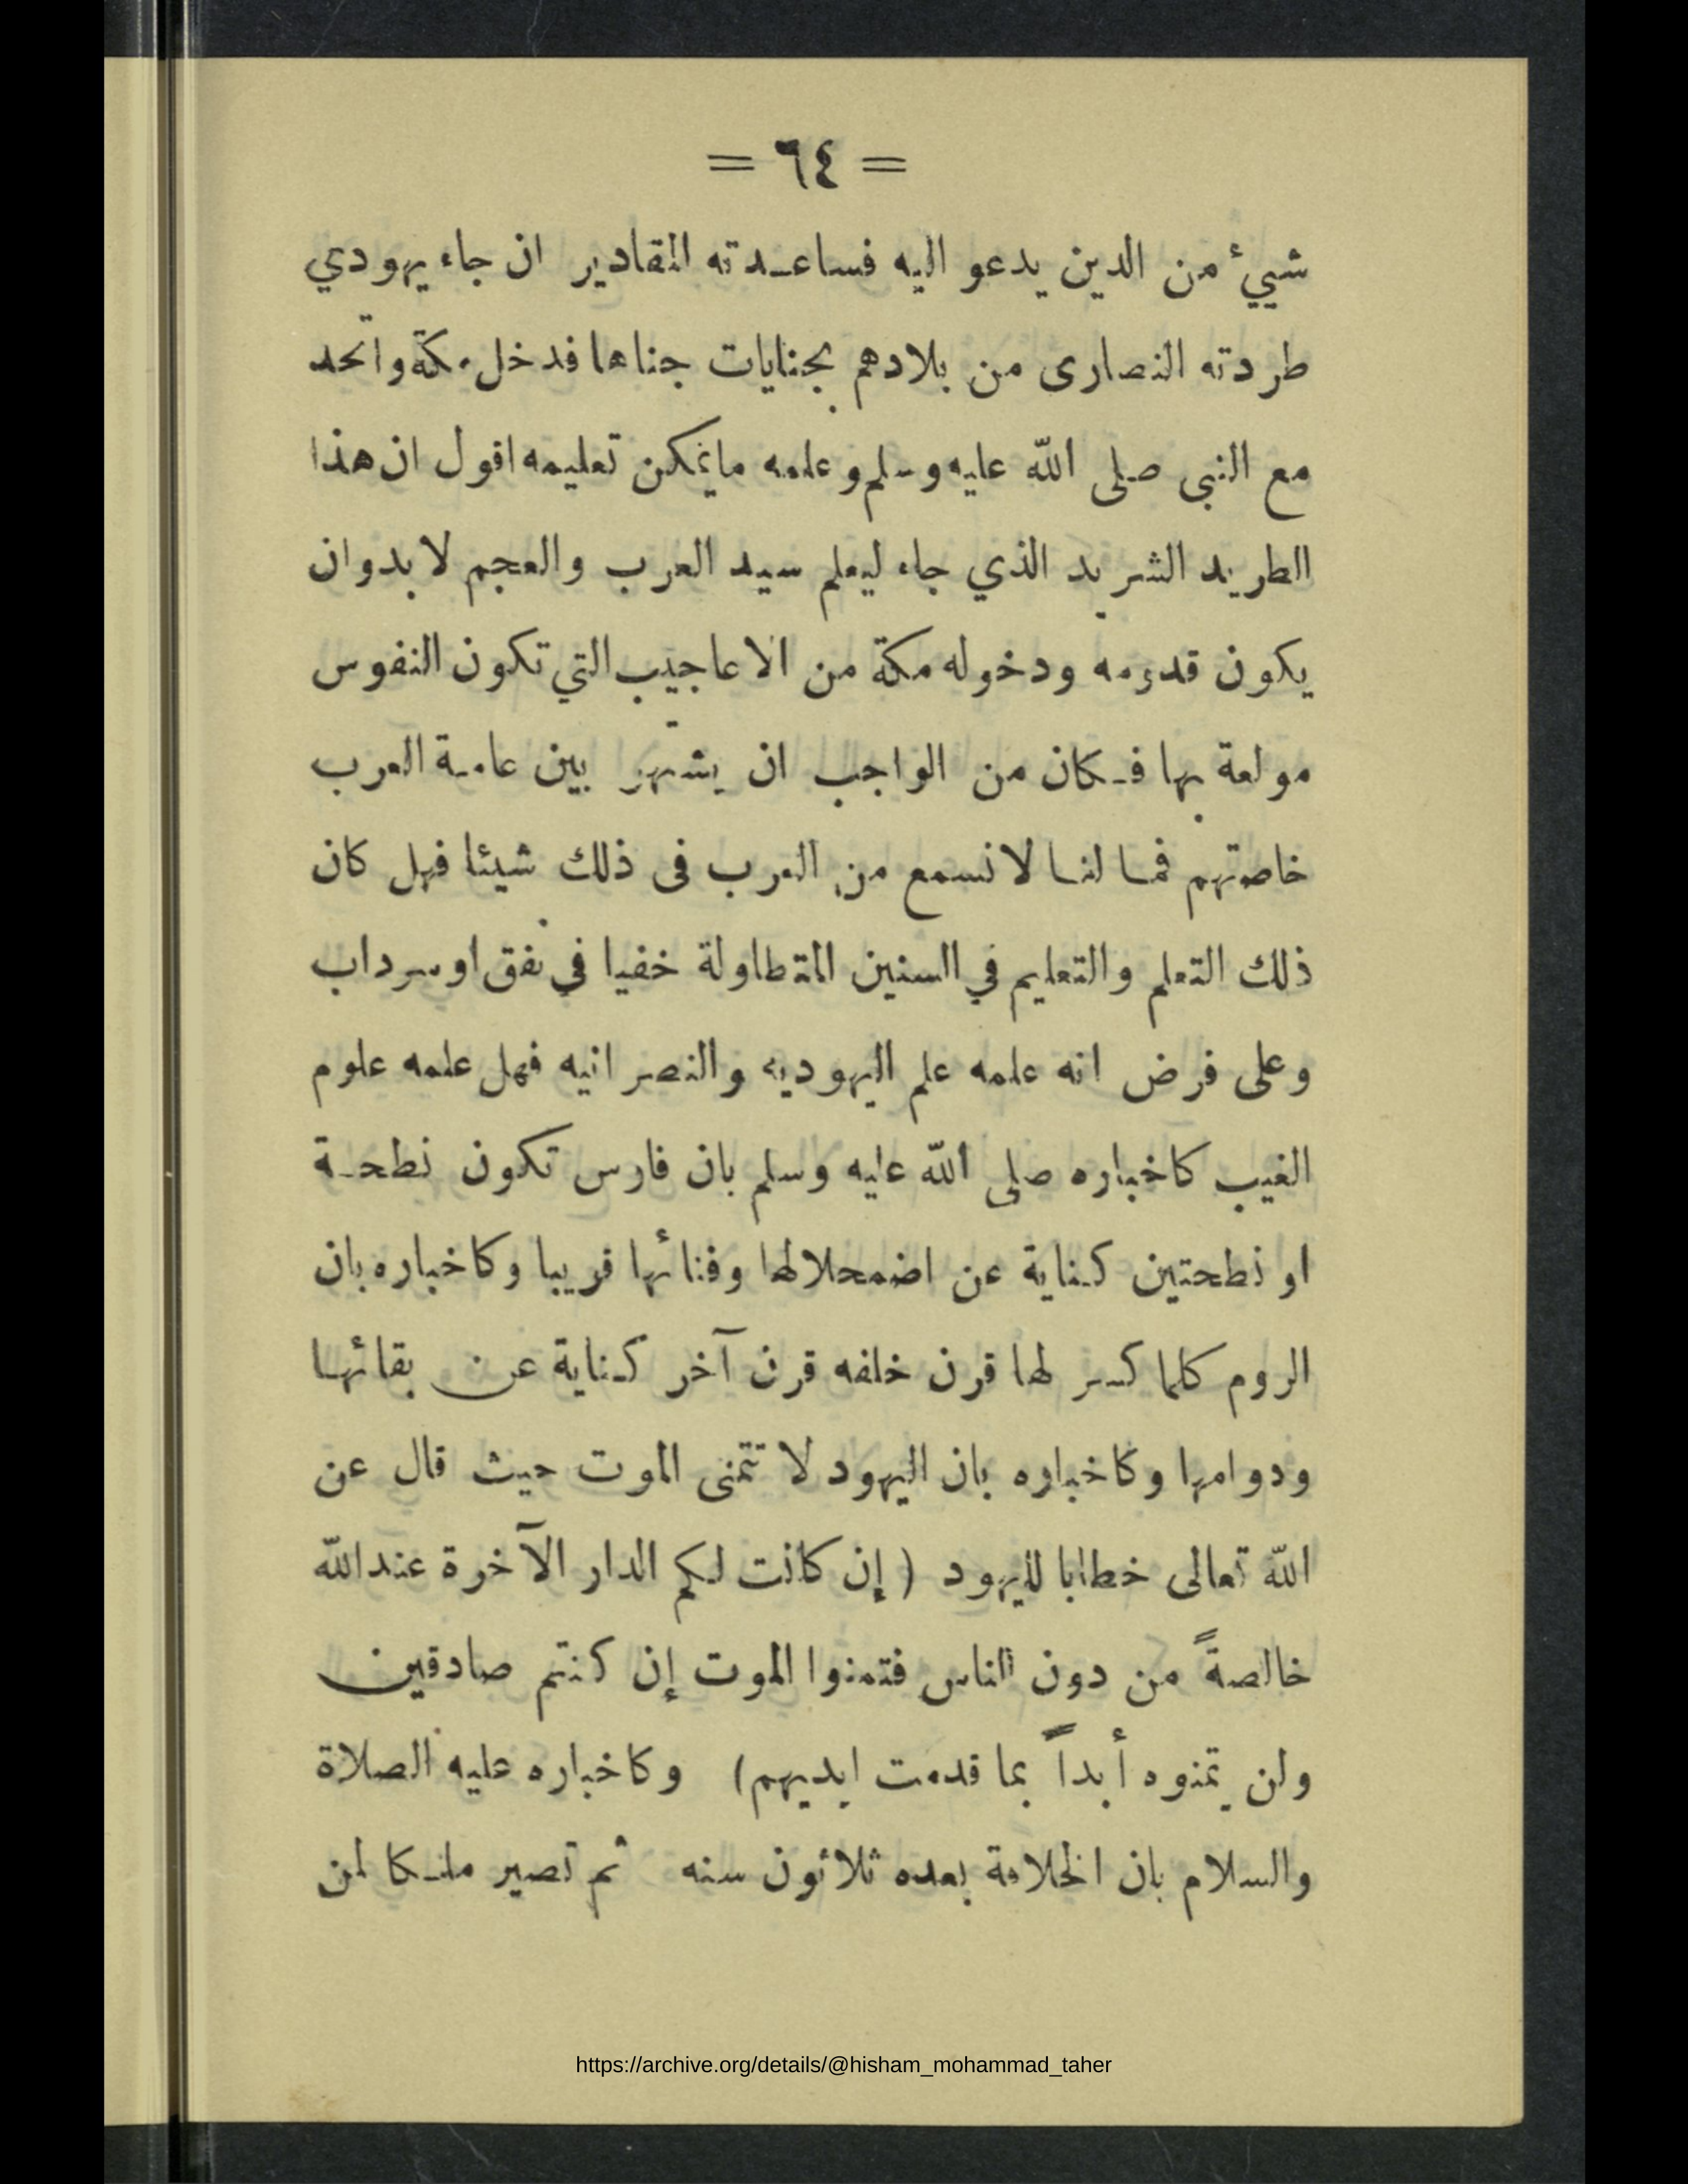 = ٦٤ =
شيئ من الدين يدعو اليه فساعدته المقادير ان جاء يهودي
طردته النصارى من بلادهم بجنايات جناها فدخل مكة واتحد
مع النبى صلى الله عليه وسلم وعلمه مايمكن تعليمه اقول ان هذا
الطريد الشريد الذي جاء ليعلم سيد العرب والعجم لا بدوان
يكون قدومه ودخوله مكة من الاعاجيب التي تكون النفوس
مولعة بها فكان من الواجب ان يشتهر بين عامة العرب
خاصتهم فما لنا لا نسمع من العرب فى ذلك شيئا فهل كان
ذلك التعلم والتعليم في السنين المتطاولة خفيا في نفق او سرداب
وعلى فرض انه علمه علم اليهوديه والنصرانيه فهل علمه علوم
الغيب كاخباره صلى الله عليه وسلم بان فارس تكون نطحة
او نطحتين كناية عن اضمحلالها وفنائها قريبا وكاخباره بان
الروم كلما كسر لها قرن خلفه قرن آخر كناية عن بقائها
ودوامها وكاخباره بان اليهود لا تتمنى الموت حيث قال عن
الله تعالى خطابا لليهود ( إن كانت لكم الدار الآخرة عندالله
خالصةً من دون الناس فتمنوا الموت إن كنتم صادقين
ولن يتمنوه أبداً بما قدمت ايديهم) وكاخباره عليه الصلاة
والسلام بان الخلافة بعده ثلاثون سنه ثم تصير ملكا لمن
https://archive.org/details/@hisham_mohammad_taher